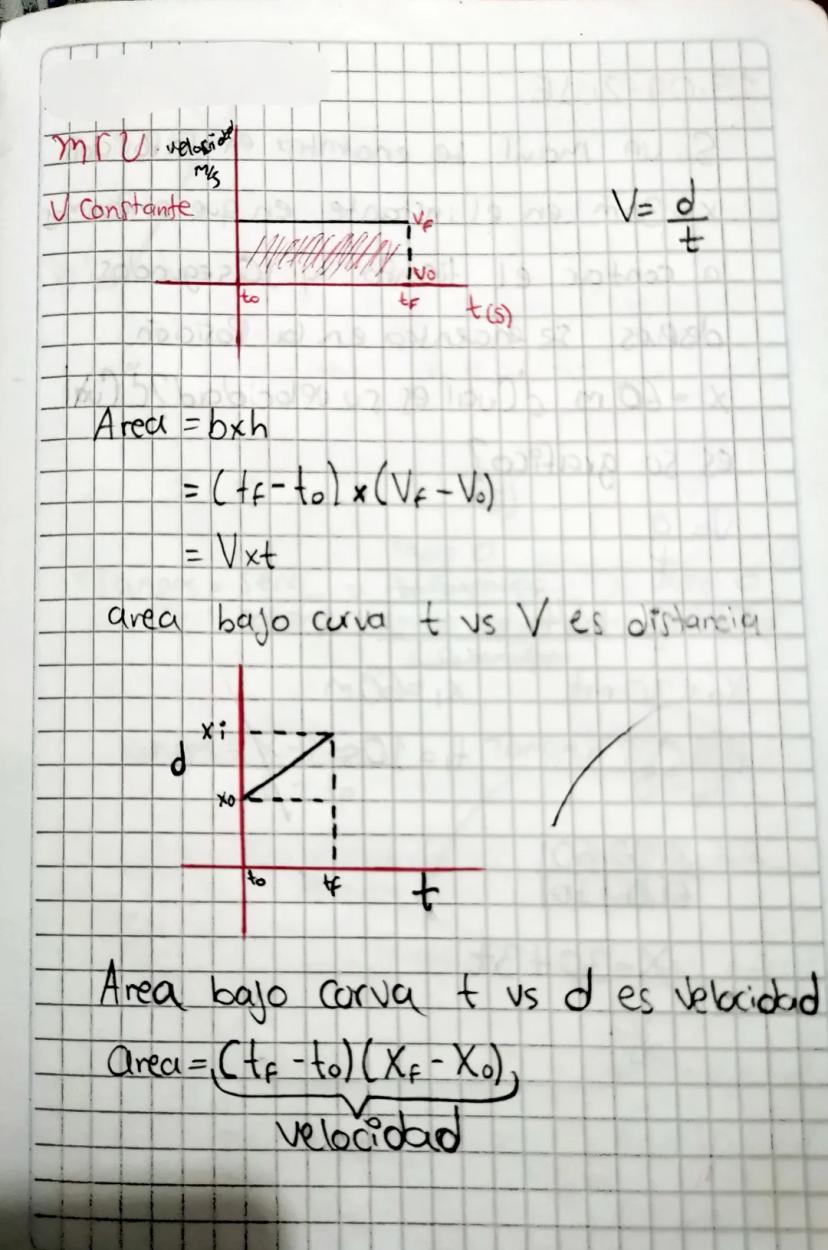 MrU velocidad
m/s
V constante
Vf
V0
t0
tf
t(s)
V = d/t
Area = bxh
= (tf - t0) x (Vf - V0)
= Vxt
area bajo curva t vs V es distancia
xi
d
x0
t0
tf
t
Area bajo corva t vs d es velocidad
area = (tf - t0)(Xf - X0)
velocidad